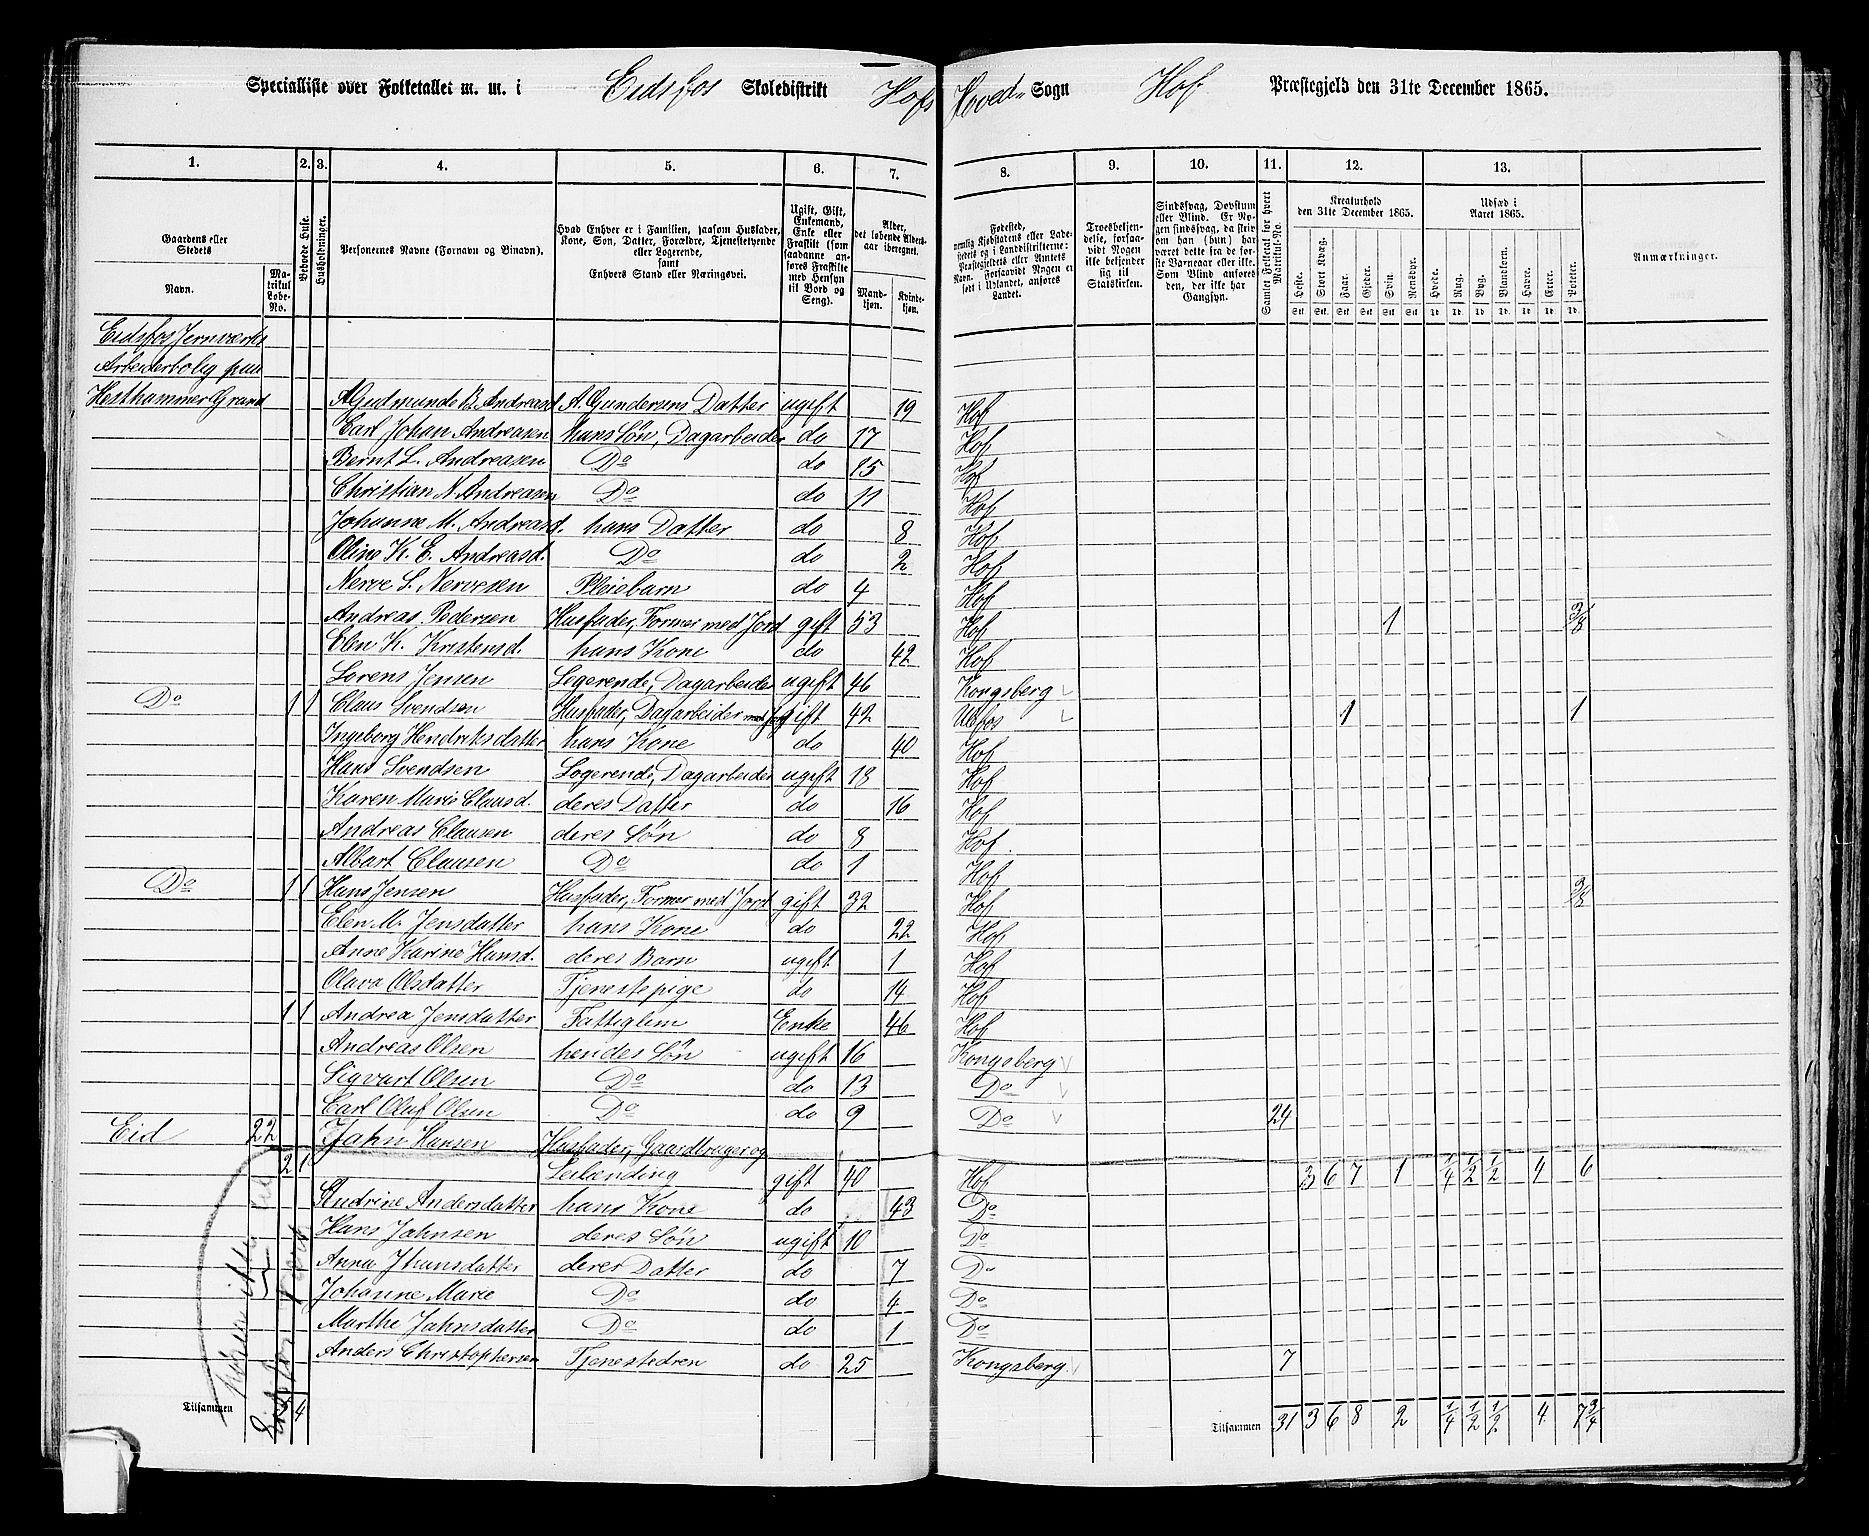 Specialliste over Folketallet m. m. i Eidsfos Skoledistrikt Hofs Hoved- Sogn Hof Præstegjeld den 31te December 1865.
1. 2. 3. 4. 5. 6. 7. 8. 9. 10. 11. 12. 13.
Gaardens eller Stedets
Navn.
Matrikul Løbe-No.
Beboede Huse.
Husholdninger.
Personernes Navne (Fornavn og Binavn).
Hvad Enhver er i Familien, saasom Husfader, Kone, Søn, Datter, Forældre, Tjenestetyende eller Logerende, samt Enhvers Stand eller Næringsvei.
Ugift, Gift, Enkemand, Enke eller Fraskilt (som saadanne anføres Fraskilte med Hensyn til Bord og Seng).
Alder, det løbende Aldersaar iberegnet.
Mandkjøn. Kvindekjøn.
Fødested, nemlig Kjøbstadens eller Ladestedets og i Landdistrikterne: Præstegjeldets eller Amtets Navn. Forsaavidt Nogen er født i Udlandet, anføres Landet.
Troesbekjendelse, forsaavidt Nogen ikke bekjender sig til Statskirken.
Sindssvag, Døvstum eller Blind. Er Nogen sindssvag, da strix om han (hun) har været dette fra de første Barneaar eller ikke. Som Blind anføres den, der ikke har Gangsyn.
Samlet Folketal for hvert Matrikul-No.
Kreaturhold den 31te December 1865.
Heste. Stort Kvæg. Faar. Gjeder. Svin. Rensdyr.
Udsæd i Aaret 1865.
Hvede. Rug. Byg. Blandkorn. Havre. Erter. Poteter.
Anmærkninger.
Eidsfos Jernværks
Arbeiderbolig paa
Hesthammer Grund A Gudmunde B. Andreasd. A. Gundersens Datter ugift 19 Hof
Carl Johan Andreasen hans Søn, Dagarbeider do 17 Hof
Bernt L. Andreasen Do do 15 Hof
Christian N. Andreasen Do do 11 Hof
Johanne M. Andreasd. hans Datter do 8 Hof
Oline K. E. Andreasd. Do do 2 Hof
Nerve L. Nervesen Pleiebarn do 4 Hof
Andreas Pedersen Husfader, Former med Jord gift 53 Hof 1 3/8
Elen K. Kristensd. hans Kone do 42 Hof
Lorens Jensen Logerende, Dagarbeider ugift 46 Kongsberg
Do 1 1 Claus Svendsen Husfader, Dagarbeider med Jord gift 42 Ulefos 1 1
Ingeborg Hendriksdatter hans Kone do 40 Hof
Hans Svendsen Logerende, Dagarbeider ugift 18 Hof
Karen Marie Clausd. deres Datter do 16 Hof
Andreas Clausen deres Søn do 8 Hof.
Albart Clausen Do do 1 Hof
Do 1 1 Hans Jensen Husfader, Former med Jord gift 32 Hof 3/8
Elen M. Jensdatter hans Kone do 22 Hof
Anne Karine Hansd. deres Barn ugift 1 Hof
Olava Olsdatter Tjenestepige do 14 Hof
1 1 Andrea Jensdatter Fattiglem Enke 46 Hof
Andreas Olsen hendes Søn ugift 16 Kongsberg
Sigvart Olsen Do do 13 Do
Carl Oluf Olsen Do do 9 Do 24
Eid 22 Jahn Hansen Husfader, Gaardbruger og
2 1 Leilending gift 40 Hof 3 6 7 1 1/4 1/2 1/2 4 6
Andrine Andersdatter hans Kone do 43 Do
Hans Jahnsen deres Søn ugift 10 Do
Anna Jhansdatter deres Datter do 7 Do
Johanne Marie Do do 4 Do
Marthe Jahnsdatter Do do 1 Do
Anders Christophersen Tjenestedren do 25 Kongsberg. 7
Tilsammen 4
Tilsammen 31 3 6 8 2 1/4 1/2 1/2 4 7 3/4